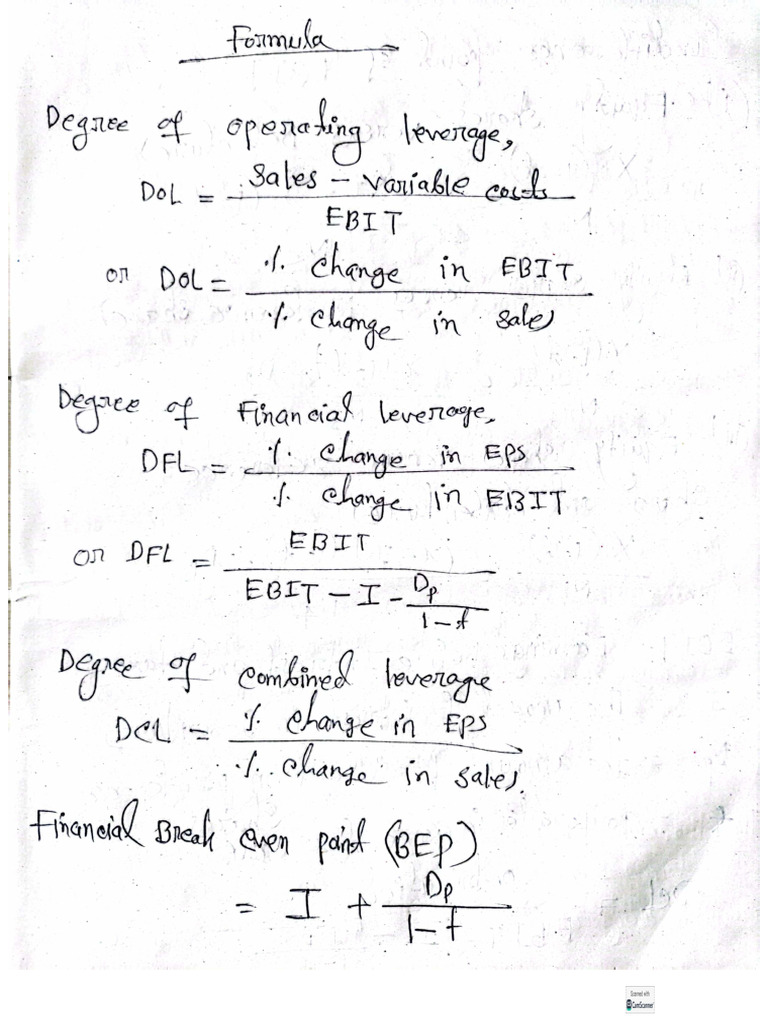 Formula
Degree of operating leverage,
DOL = Sales - variable costs / EBIT
or DOL = % change in EBIT / % change in sales
Degree of Financial leverage,
DFL = % change in EPS / % change in EBIT
or DFL = EBIT / EBIT - I - Dp / 1-t
Degree of combined leverage
DCL = % change in EPS / % change in sales.
Financial Break even point (BEP)
= I + Dp / 1-t
Scanned with
CamScanner